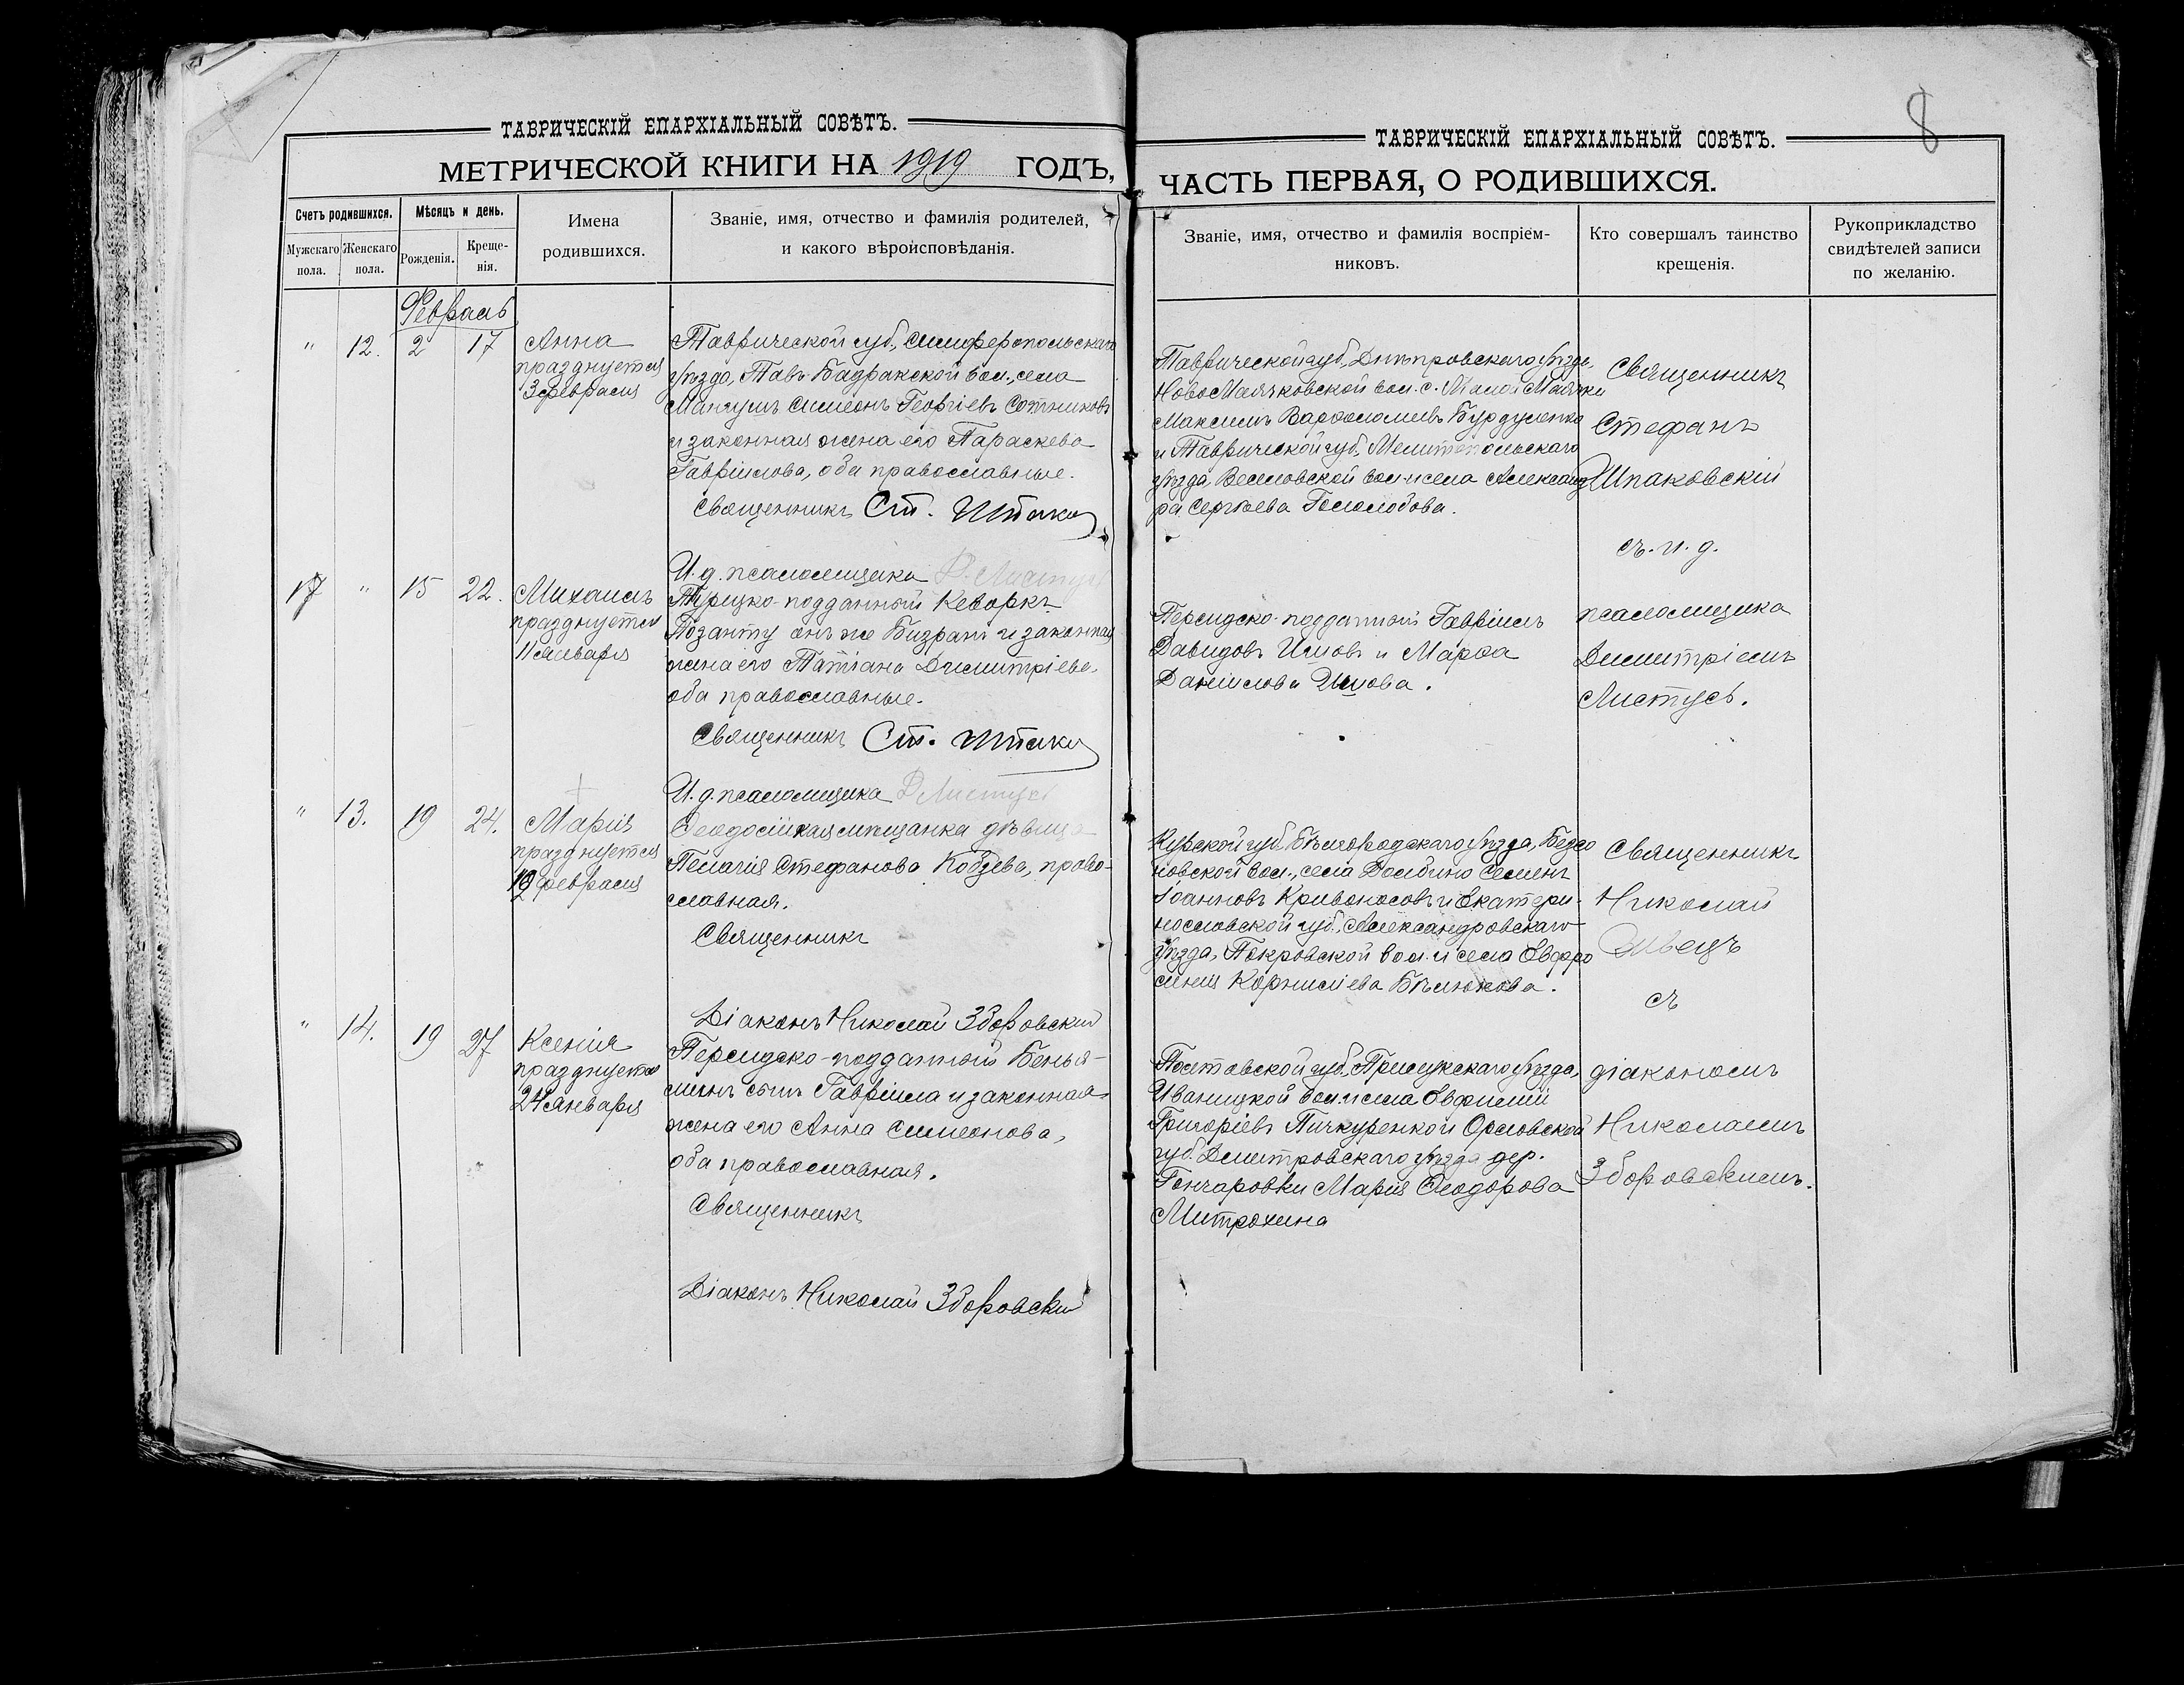 ТАВРИЧЕСКІЙ ЕПАРХІАЛЬНЫЙ СОВѢТЪ.
МЕТРИЧЕСКОЙ КНИГИ НА 1919 ГОДЪ,
Счетъ родившихся.
Мѣсяцъ и день.
Имена
родившихся.
Званіе, имя, отчество и фамилія родителей,
и какого вѣроисповѣданія.
Мужскаго
пола.
Женскаго
пола.
Рожденія.
Креще-
нія.
Февраль
" 12. 2 17
Анна
празднуется
3 февраля
Таврической губ., Симферопольскаго
уѣзда, Тавъ-Бадракской вол., села
Мангушъ Симеонъ Георгіевъ Сотниковъ
и законная жена его Параскева
Гавріилова, оба православные.
Священникъ Ст.
И. д. псаломщика Д. Листусъ
17 " 15 22.
Михаилъ
празднуется
11 января
Турецко-подданный Кеворкъ
Позанту онъ же Бизранъ и законная
жена его Татіана Димитріева,
оба православные.
Священникъ Ст.
И. д. псаломщика Д Листусъ
" 13. 19 24.
Марія
празднуется
12 февраля
Ѳеодосійская мѣщанка дѣвица
Пелагія Стефанова Кобзева, право-
славная.
Священникъ
Діаконъ Николай Зборовскій
" 14. 19 27
Ксенія
празднуется
24 января
Персидско-подданный Бенья-
минъ сынъ Гавріила и законная
жена его Анна Симеонова,
оба православная.
Священникъ
Діаконъ Николай Зборовскій
8
ТАВРИЧЕСКІЙ ЕПАРХІАЛЬНЫЙ СОВѢТЪ.
ЧАСТЬ ПЕРВАЯ, О РОДИВШИХСЯ.
Званіе, имя, отчество и фамилія воспріем-
никовъ.
Кто совершалъ таинство
крещенія.
Рукоприкладство
свидѣтелей записи
по желанію.
Таврической губ., Днѣпровскаго уѣзда,
Ново Маячковской вол. с. Маячки
Максимъ Варѳоломеевъ Бурдуленко
и Таврической губ., Мелитопольскаго
уѣзда, Веселовской вол. и села Александ
ра Сергѣева Гололобова.
Персидско-подданный Гавріилъ
Давидовъ Ишовъ и Марѳа
Даніилова Ишова.
Курской губ. Бѣлгородскаго уѣзда, Бессо
новской вол., села Долбино Семенъ
Іоанновъ Кривоносовъ и Екатери-
нославской губ., Александровскаго
уѣзда, Покровской вол. и села Евфро
синія Корниліева Бѣлюкова.
Полтавской губ., Прилукскаго уѣзда,
Иваницкой вол. и села Евфимій
Григоріевъ Пичкуренко и Орловской
губ. Дмитровскаго уѣзда дер.
Гончаровки Марія Ѳеодорова
Митрохина
Священникъ
Стефанъ
Шпаковскій
съ и. д.
псаломщика
Димитріемъ
Листусъ.
Священникъ
Николай
Швецъ
съ
діакономъ
Николаемъ
Зборовскимъ.